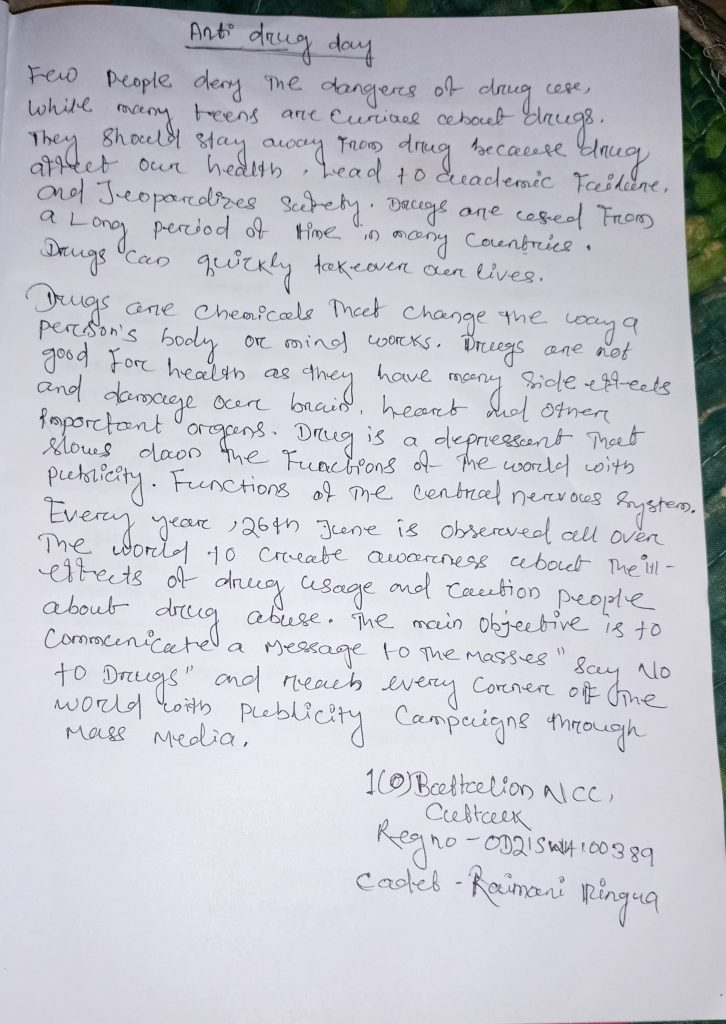 Anti drug day
Few people deny the dangers of drug use,
while many teens are curious about drugs.
They should stay away from drug because drug
affect our health, Lead to academic Failure,
and Jeopardizes safety. Drugs are used From
a Long period of time in many Countries.
Drugs can quickly takeover our lives.
Drugs are chemicals that change the way a
person's body or mind works. Drugs are not
good for health as they have many side effects
and damage our brain, heart and other
important organs. Drug is a depressant that
slows daon the Functions of the world with
publicity. Functions of the central nervous system.
Every year, 26th June is observed all over
The world to create awareness about the ill-
effects of drug usage and caution people
about drug abuse. The main objective is to
Communicate a message to the masses "Say No
to Drugs" and reach every corner off the
world with publicity Campaigns through
Mass Media.
1(O) Battalion NCC,
Cuttack
Reg no - OD21SWA100389
Cadet - Raimani Pingua